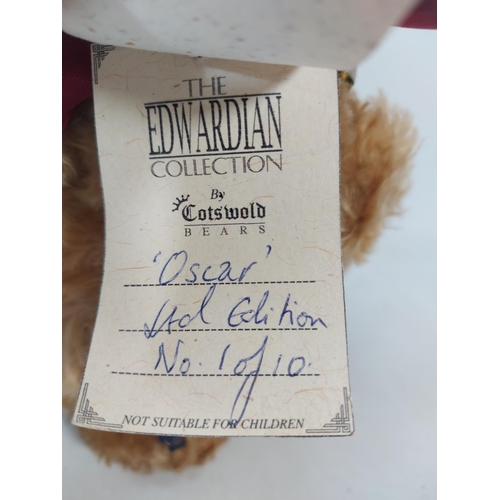 THE
EDWARDIAN
COLLECTION
By
Cotswold
BEARS
'Oscar'
Ltd Edition
No. 1 of 10.
NOT SUITABLE FOR CHILDREN